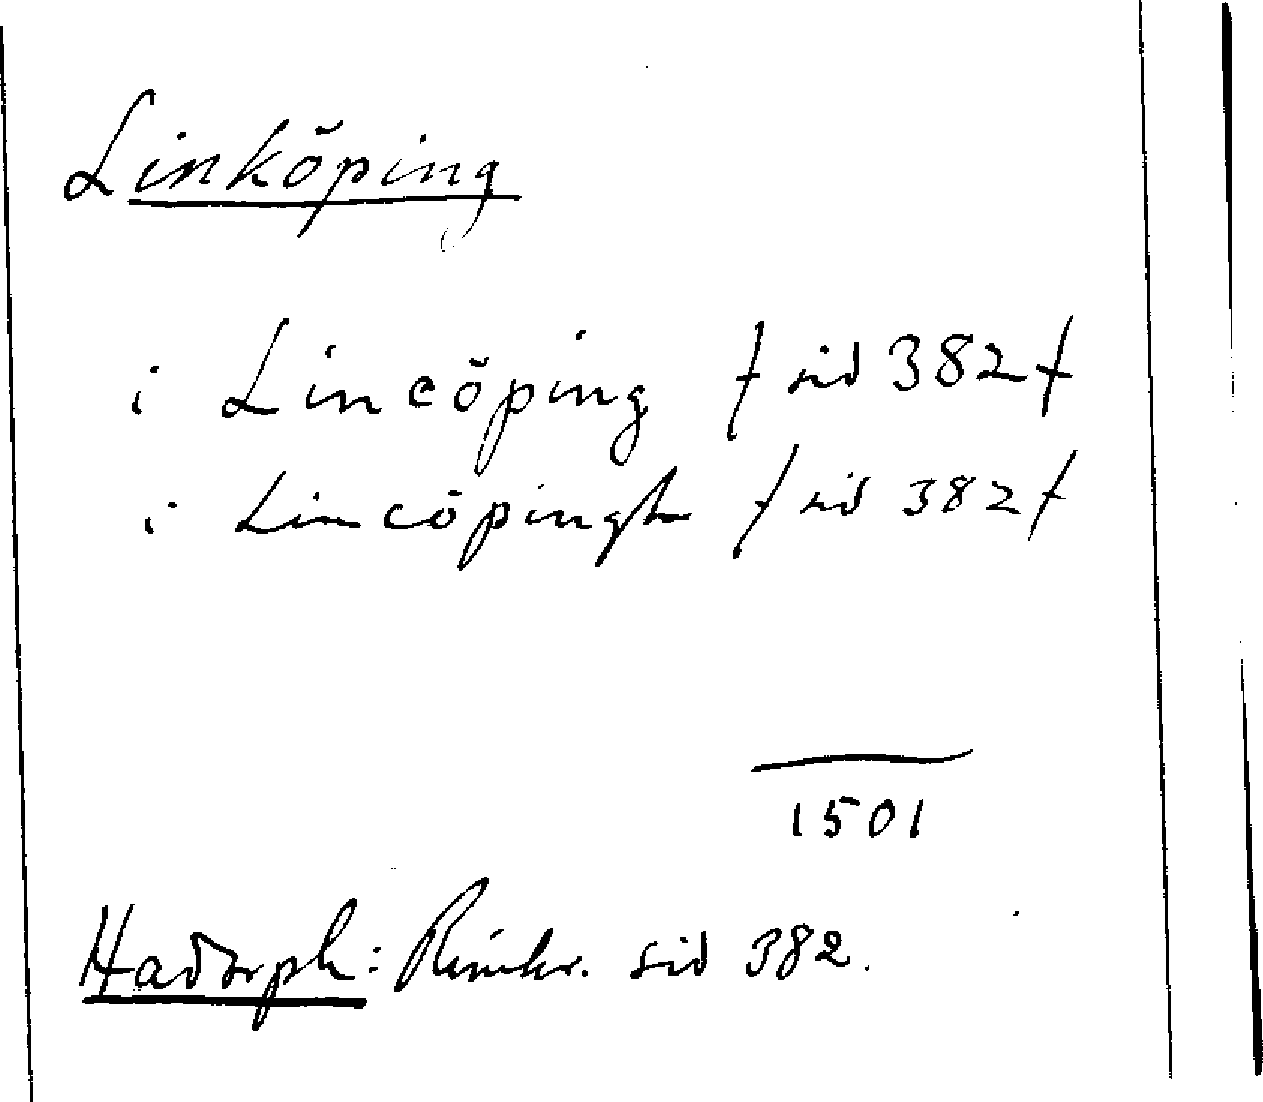 Linköping
i Lincöping / sid 382 /
i Lincöpingh / sid 382 /
1501
Hadorph: Rimkr. sid 382.